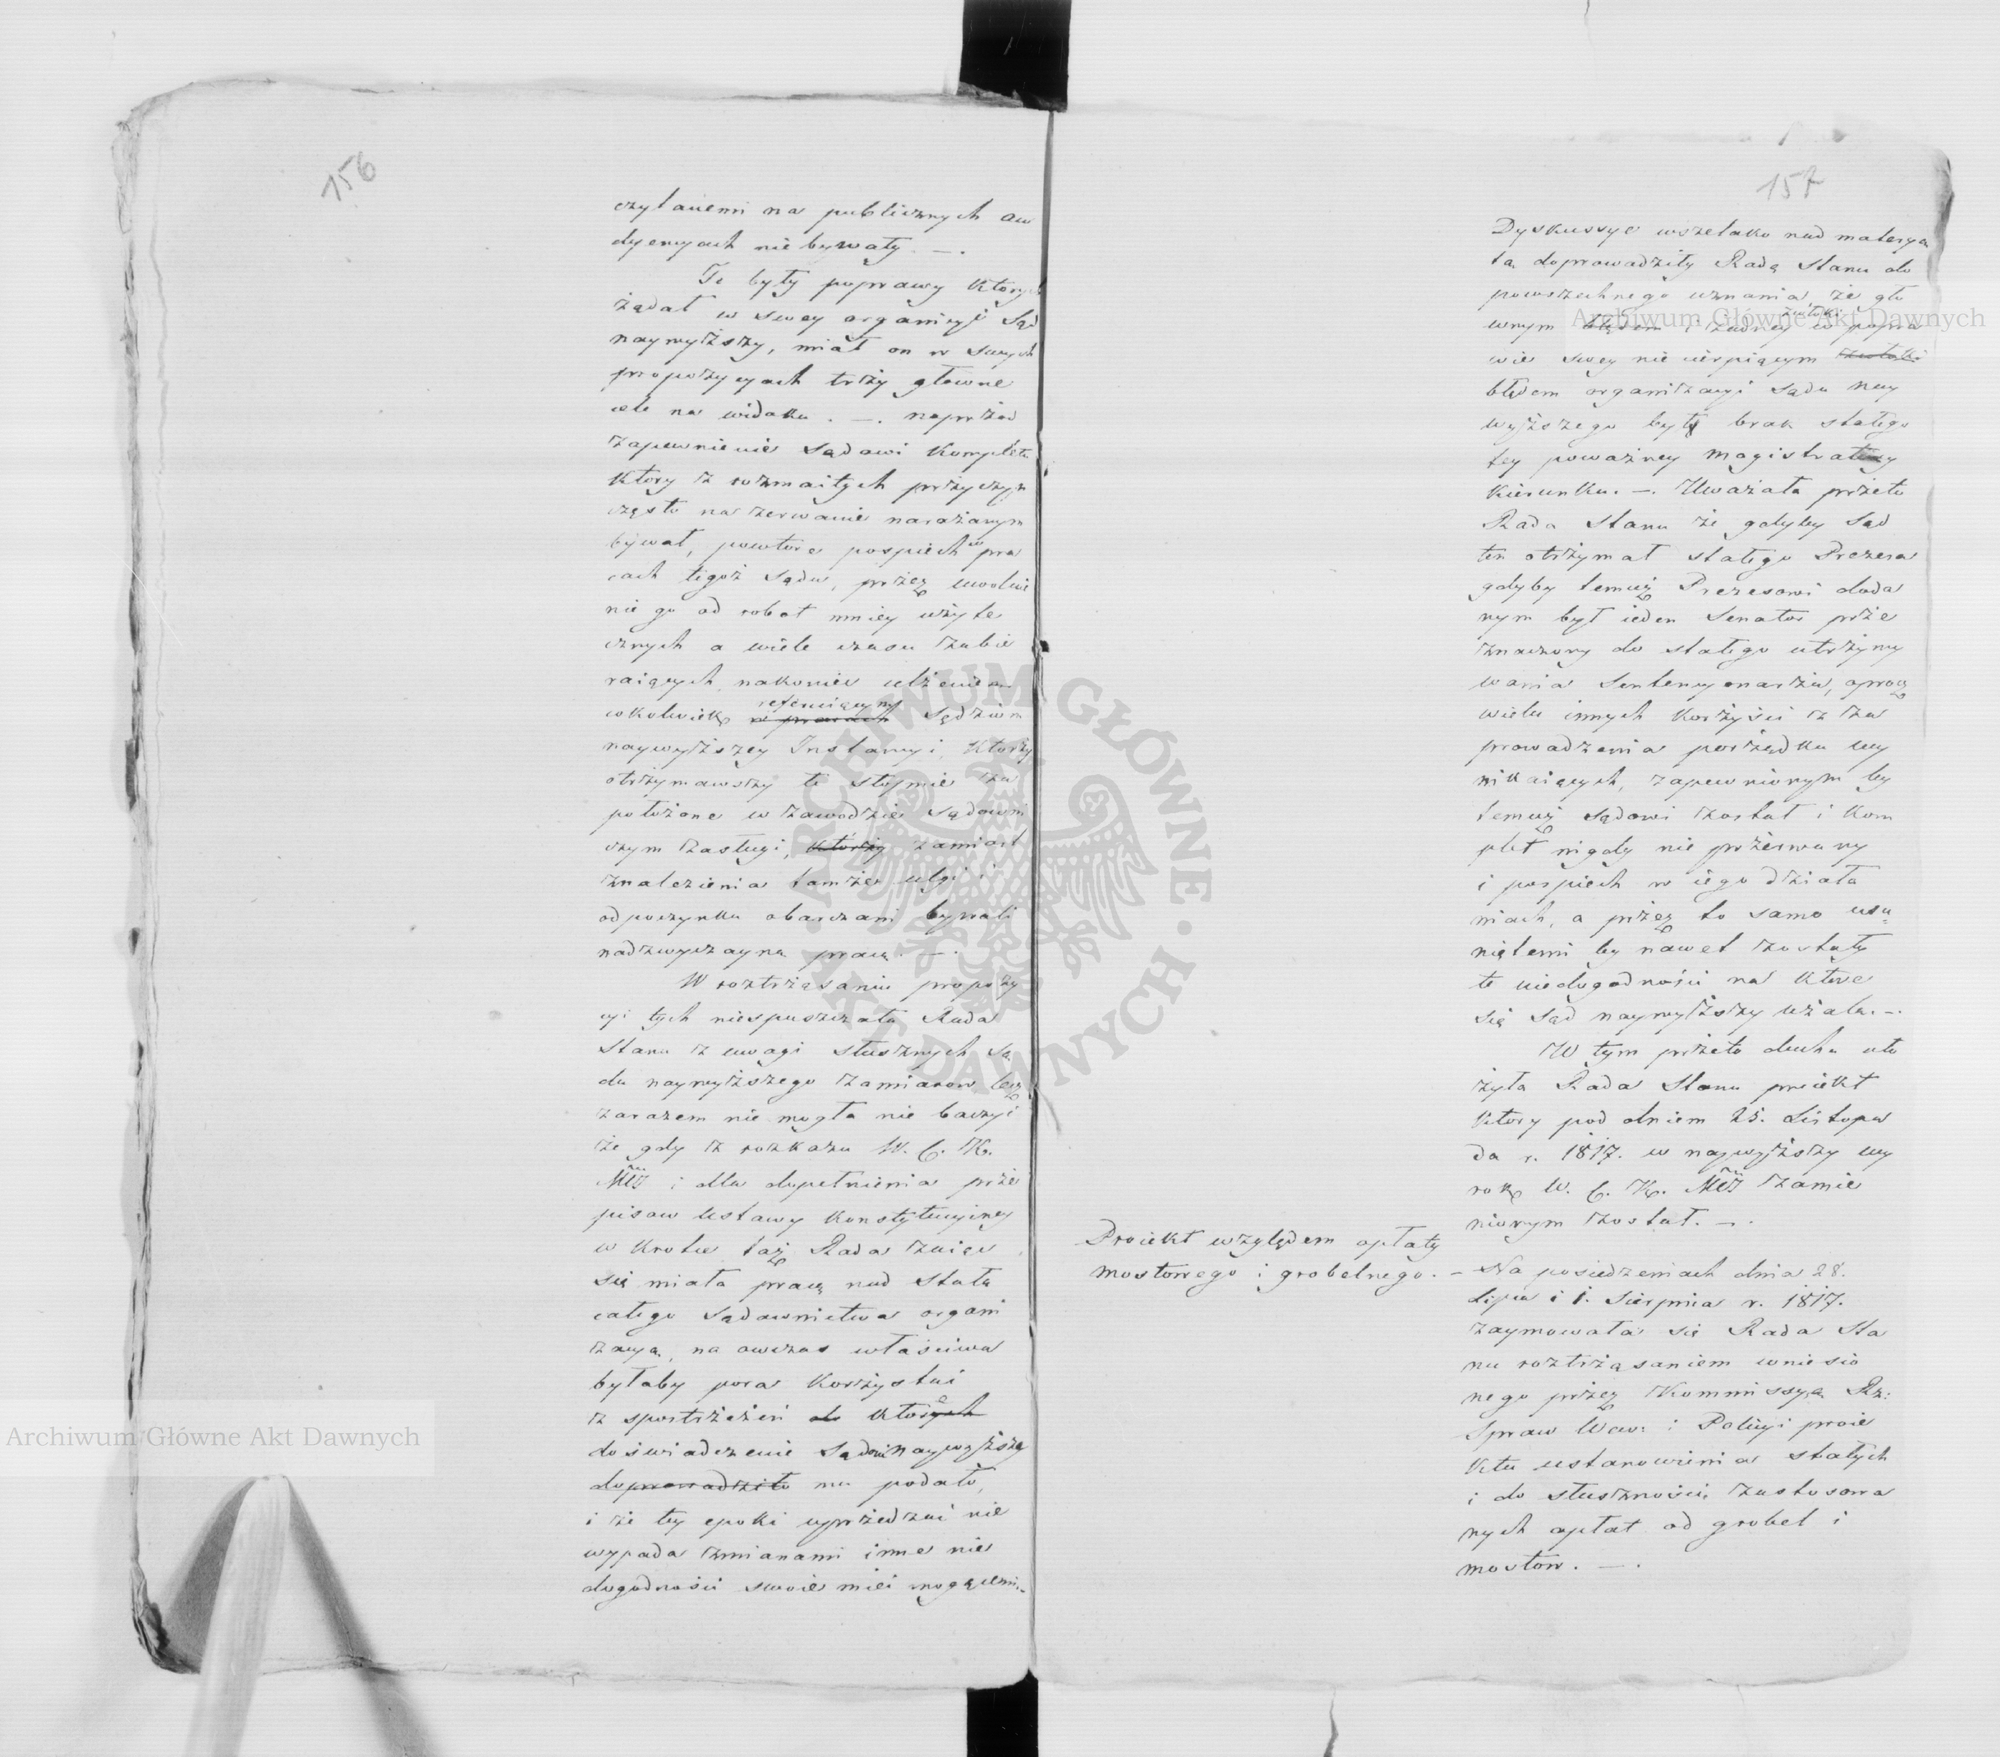 156
czytanemi na publicznych au
dyencyach nie bywały. —.
Te były poprawy których
żądał w swey organicyi Sąd
naywyższy, miał on w swych
propozycyach trży głowne
cele na widoku. —. naprżod
zapewnienie Sądowi Kompletu
Ktory z rozmaitych prżyczyn
często na zerwanie narażanym
bywał, powtore pospiech w pra
cach tegoż Sądu, przez uwolnie
nie go od robot mniey użyte
cznych a wiele czasu zabie
raiących, nakoniec ulżenie
cokolwiek referuiącym w pracach Sędziom
naywyższey Instancyi, ktorży
otrżymawszy te stopnie za
położone w zawodzie Sądowni
czym zasługi, ktorży zamiast
znalezienia tamże ulgi i
odpoczynku obarczani bywali
nadzwyczayną pracą. —.
W roztrżąsaniu propozy
cyi tych niespuszczała Rada
Stanu z uwagi słusznych Są
du naywyższego zamiarow lecz
zarazem nie mogła nie baczyć
że gdy z rozkazu W. C. K.
Mci i dla dopełnienia prże
pisow Ustawy Konstytucyiney
w krotce taż Rada zaiąć
się miała pracą nad stałą
całego Sądownictwa organi
zacyą, na owczas właściwa
byłaby pora korżystać
z spostrżeżeń do ktorych
doświadczenie Sądowi naywyższe
doprowadziło mu podało,
i że tey epoki uprżedzać nie
wypada zmianami inne nie
dogodności swoie mieć mogącemi.—
157
Dyskussye wszelako nad materyą
tą doprowadziły Radę Stanu do
powszechnego uznania, że gło
wnym błędem i żadney zwłoki w popra
wie swey nie cierpiącym zwłoki
błędem organizacyi Sądu nay
wyższego był brak stałego
tey poważney magistratury
kierunku. —. Uważała prżeto
Rada Stanu że gdyby Sąd
ten otrżymał stałego Prezesa
gdyby temuż Prezesowi doda
nym był ieden Senator prże
znaczony do stałego utrżymy
wania Sentencyonarża, oprocz
wielu innych korżyści z za
prowadzenia porżądku wy
nikaiących, zapewnionym by
temuż Sądowi został i kom
plet nigdy nie prżerwany
i pospiech w iego działa
niach, a prżez to samo usu=
niętemi by nawet zostały
te niedogodności na ktore
się Sąd naywyższy użala. —.
W tym prżeto duchu uło
żyła Rada Stanu proiekt
ktory pod dniem 25. Listopa
da r. 1817. w naywyższy wy
rok W. C. K. Mci zamie
nionym został. —.
Proiekt względem opłaty
mostowego i grobelnego. —
Na posiedzeniach dnia 28.
Lipca i 1. Sierpnia r. 1817.
zaymowała się Rada Sta
nu roztrżąsaniem wniesio
nego prżez Kommissyą Rz:
Spraw Wew: i Policyi proie
ktu ustanowienia stałych
i do słuszności zastosowa
nych opłat od grobel i
mostow. —.
Archiwum Główne Akt Dawnych
Archiwum Główne Akt Dawnych
ARCHIWUM GŁÓWNE · AKT DAWNYCH ·